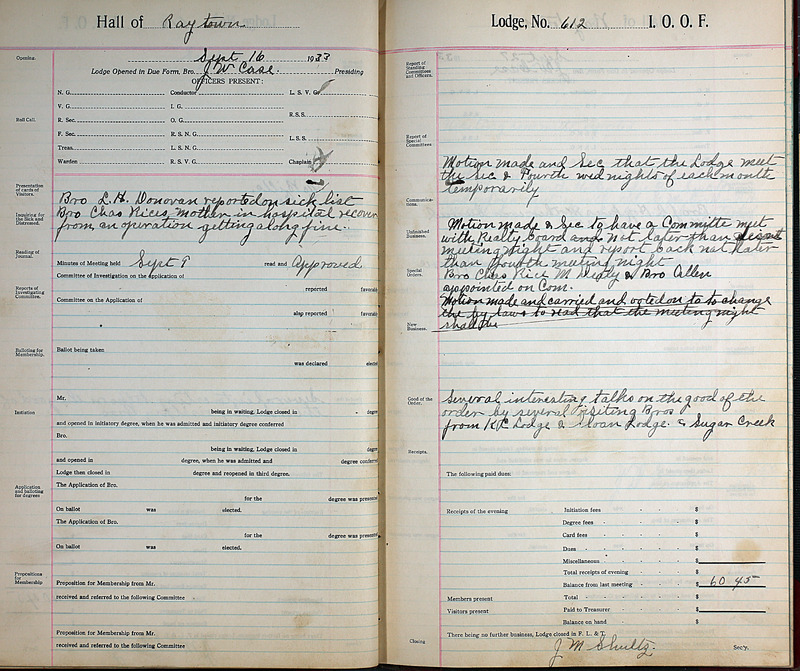 Hall of Raytown
Opening.
Sept 16 1933
Lodge Opened in Due Form, Bro. J W Case. Presiding
OFFICERS PRESENT:
Roll Call.
N. G. Conductor L. S. V. G.
V. G. I. G.
R. Sec. O. G. R.S.S.
F. Sec. R. S. N. G.
Treas. L. S. N. G. L.S.S.
Warden R. S. V. G. Chaplain
Presentation of cards of Visitors.
Inquiring for the Sick and Distressed.
Bro L.H. Donovan reported on sick list
Bro Chas Rices, mother in hospital recover
from an operation getting along fine.
Reading of Journal.
Minutes of Meeting held Sept 9 read and Approved
Committee of Investigation on the application of
Reports of Investigating Committee.
reported favorab
Committee on the Application of
also reported favora
Balloting for Membership.
Ballot being taken
was declared elected
Mr.
Initiation
being in waiting, Lodge closed in degre
and opened in initiatory degree, when he was admitted and initiatory degree conferred
Bro.
being in waiting, Lodge closed in degre
and opened in degree, when he was admitted and degree conferre
Lodge then closed in degree and reopened in third degree.
Application and balloting for degrees
The Application of Bro.
for the degree was presente
On ballot was elected.
The Application of Bro.
for the degree was presente
On ballot was elected.
Propositions for Membership
Proposition for Membership from Mr.
received and referred to the following Committee
Proposition for Membership from Mr.
received and referred to the following Committee
Lodge, No. 612 I. O. O. F.
Report of Standing Committees and Officers.
Report of Special Committees.
Motion made and Sec that the Lodge meet
the Sec & Fourth wed nights of each month
temporarily
Communications.
Unfinished Business.
Motion made & Sec to have a Committe meet
with Realty Board and not later than
meeting night and report back not later
than fourth meeting night
Special Orders.
Bro Chas Rice M & Bro Allen
appointed on Com.
Motion made and carried and voted on to to change
the by laws to read that the meeting night
shall be
New Business.
Good of the Order.
Several interesting talks on the good of the
order by several visiting Bros
from KC Lodge & Sloan Lodge. & Sugar Creek
Receipts.
The following paid dues:
Receipts of the evening Initiation fees $
Degree fees $
Card fees $
Dues $
Miscellaneous $
Total receipts of evening $
Balance from last meeting $ 60 45
Members present Total $
Visitors present Paid to Treasurer $
Balance on hand $
Closing
There being no further business, Lodge closed in F. L. & T.
J M Shultz. Sec'y.